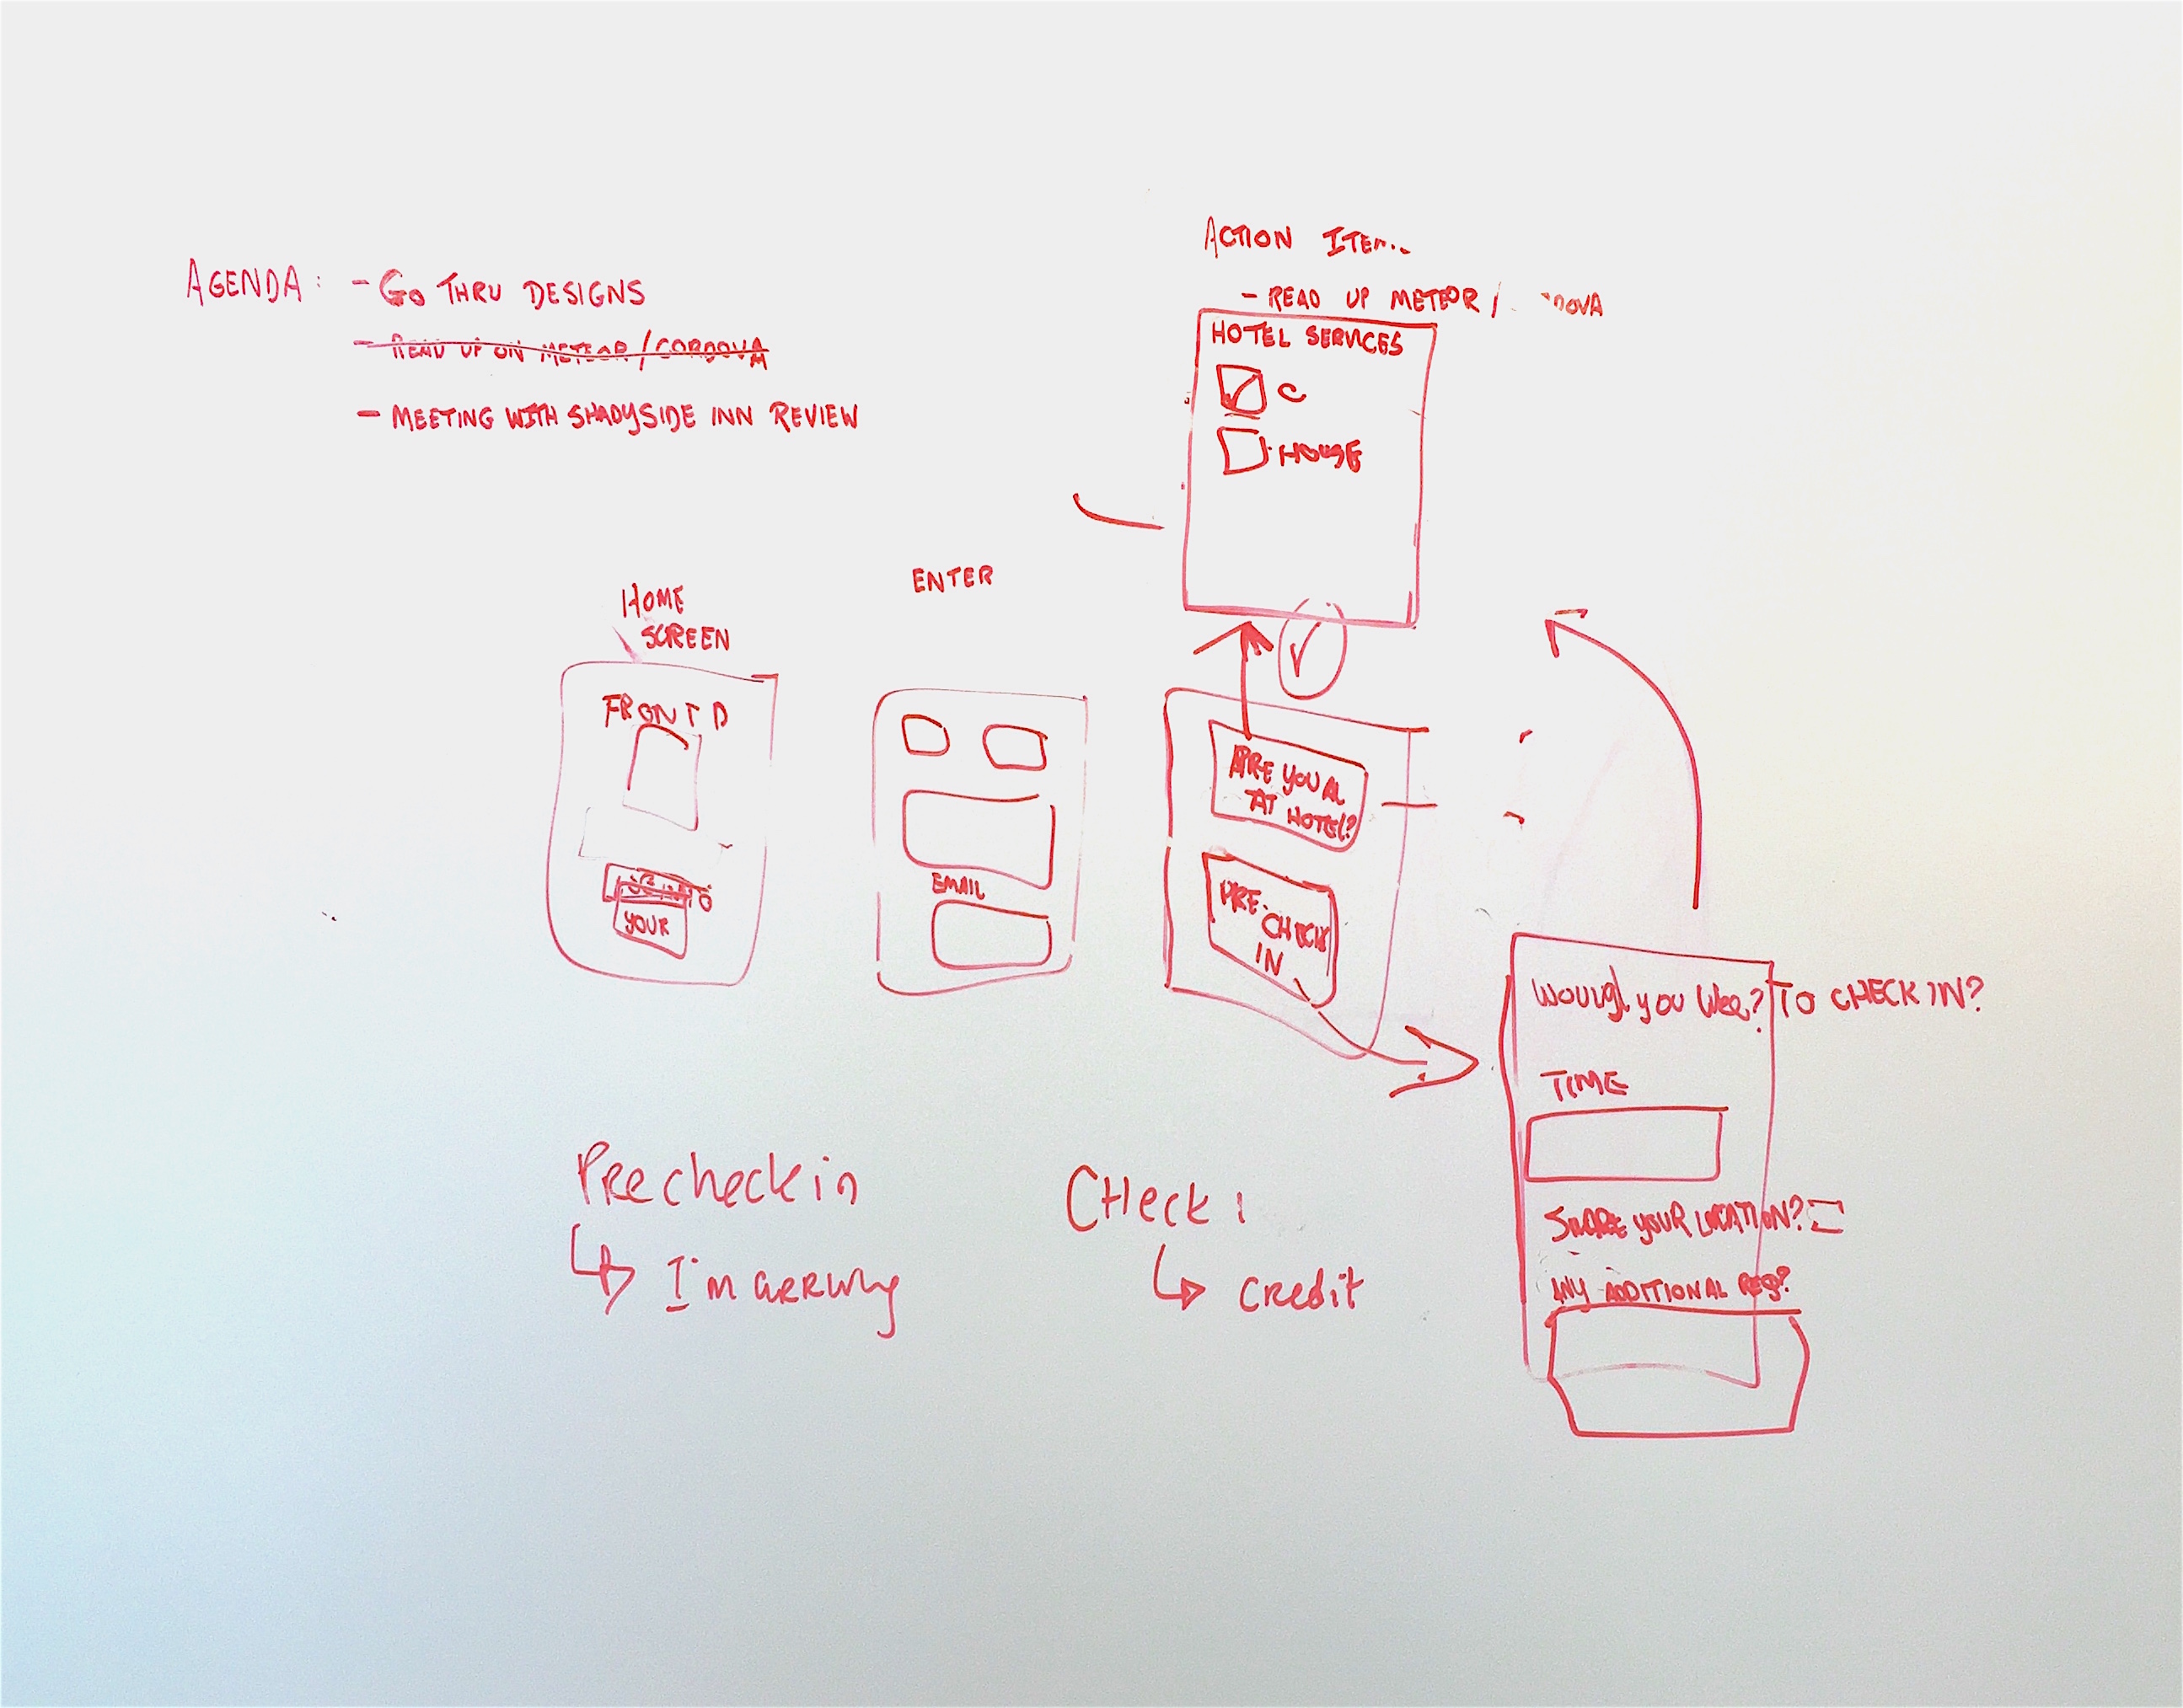 AGENDA: - Go THRU DESIGNS
- READ UP ON METEOR/CORDOVA
- MEETING WITH SHADYSIDE INN REVIEW
ACTION
- READ UP METEOR /
HOTEL SERVICES
C
HOUSE
HOME
SCREEN
FRONT D
YOUR
ENTER
EMAIL
ARE YOU AL
AT HOTEL?
PRE-
CHECK
IN
WOULD you like? TO CHECK IN?
TIME
SHARE YOUR LOCATION?
ANY ADDITIONAL REQ?
Precheckin
I'm arriving
CHeck i
credit